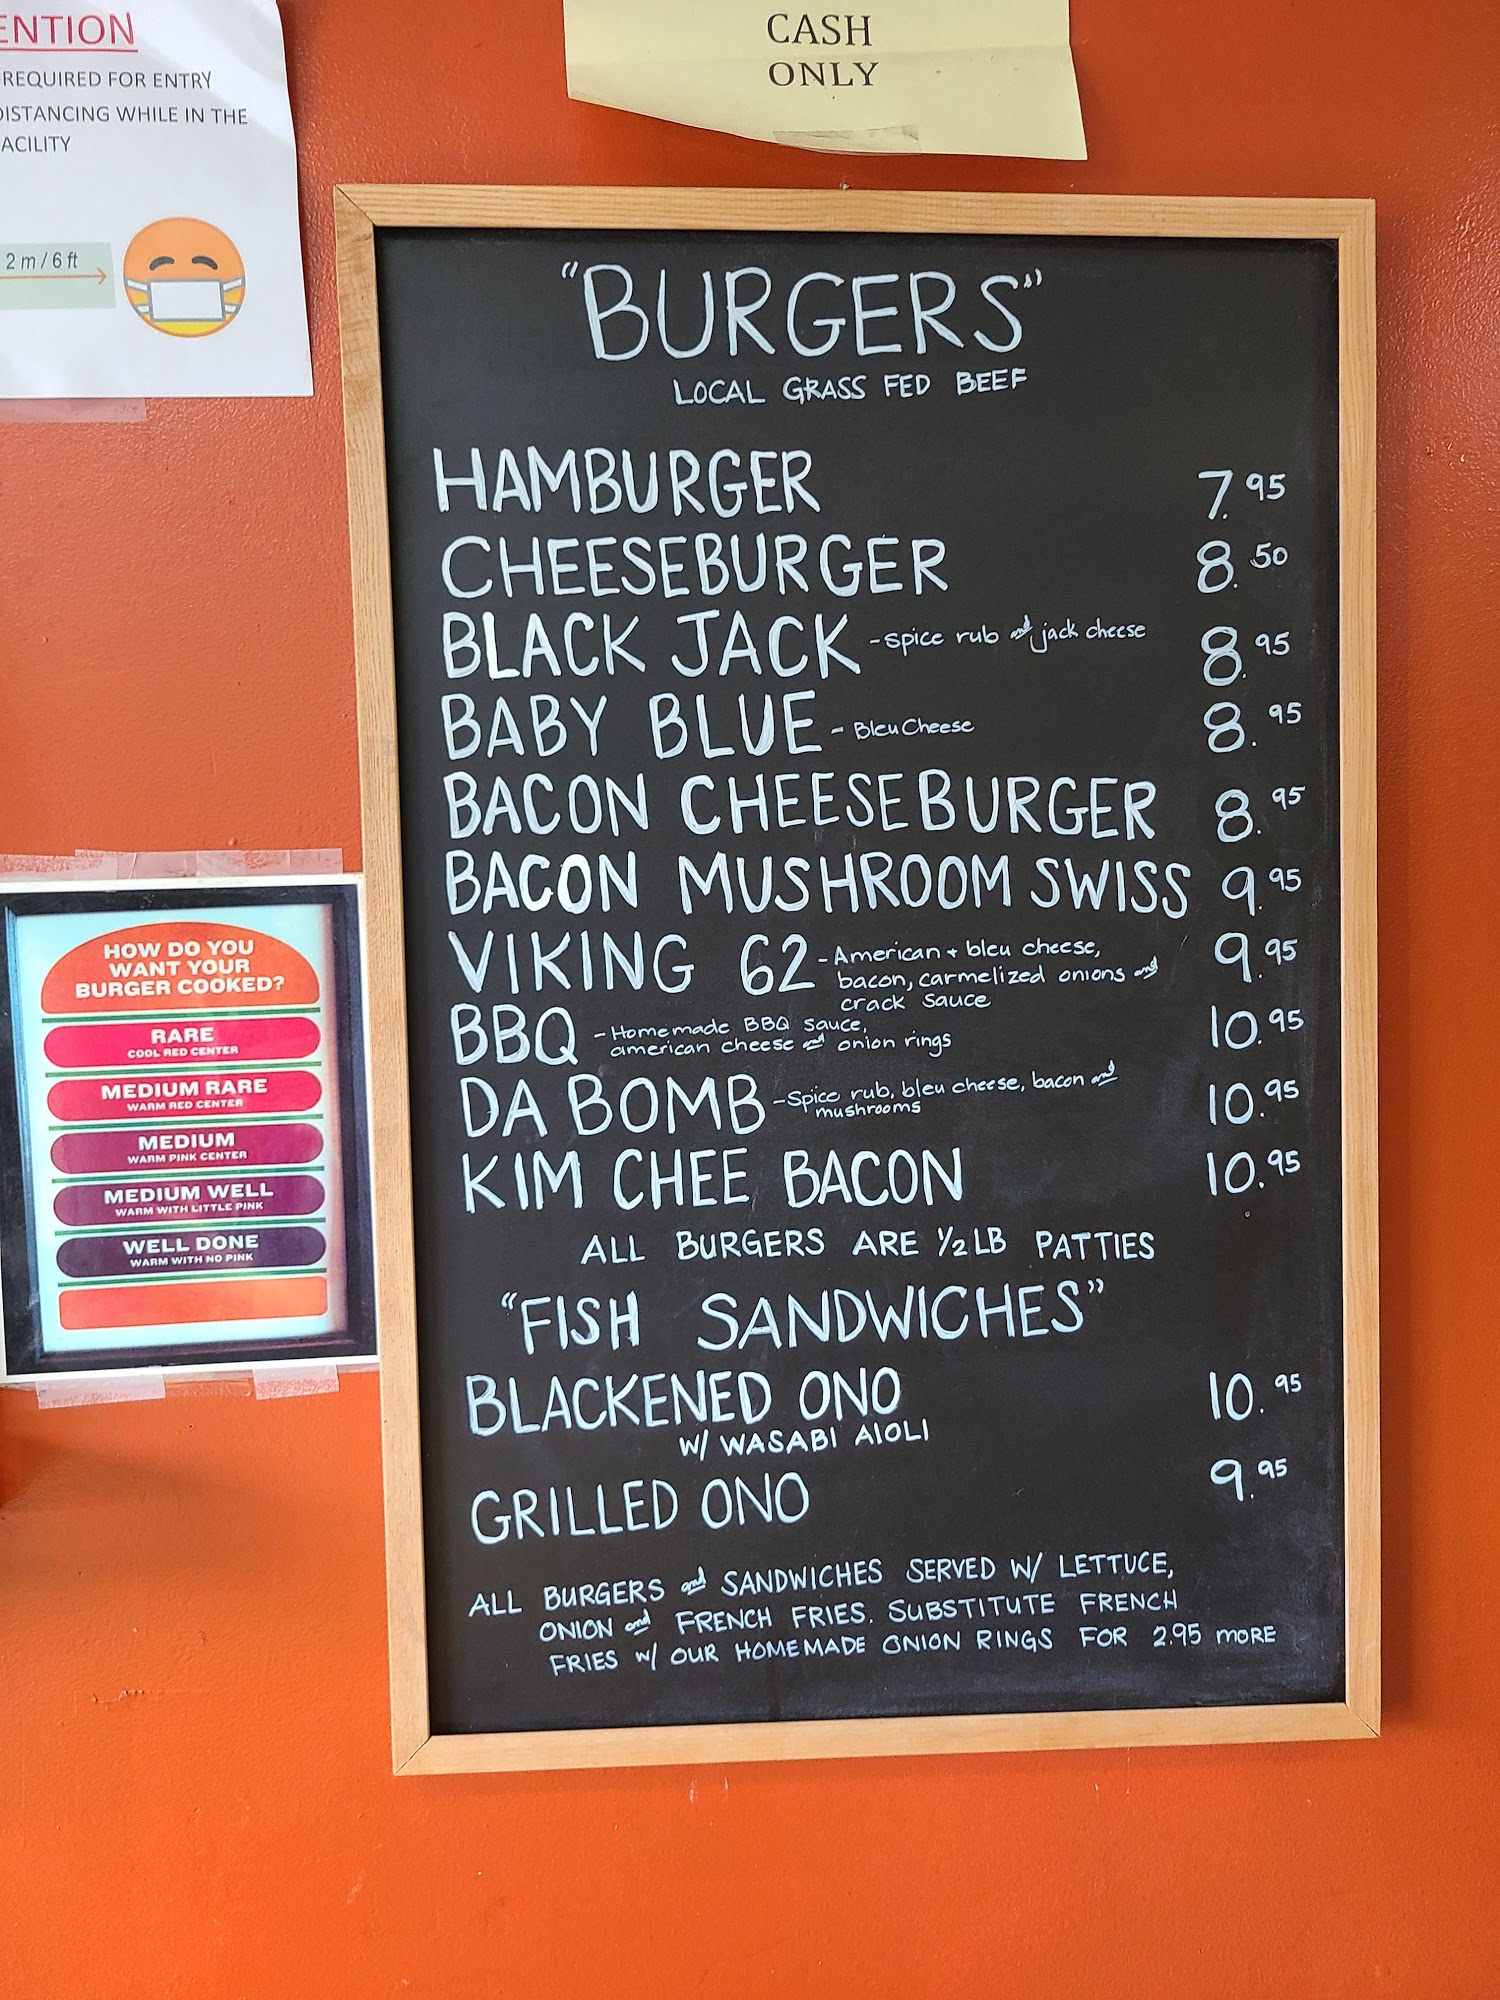 ENTION
REQUIRED FOR ENTRY
DISTANCING WHILE IN THE
ACILITY
2 m / 6 ft
CASH
ONLY
"BURGERS"
LOCAL GRASS FED BEEF
HAMBURGER 7.95
CHEESEBURGER 8.50
BLACK JACK -spice rub and jack cheese 8.95
BABY BLUE - Bleu Cheese 8.95
BACON CHEESEBURGER 8.95
BACON MUSHROOM SWISS 9.95
VIKING 62 -American + bleu cheese, 9.95
bacon, carmelized onions and
crack sauce
BBQ -Homemade BBQ sauce, 10.95
american cheese and onion rings
DA BOMB -Spice rub, bleu cheese, bacon and 10.95
mushrooms
KIM CHEE BACON 10.95
ALL BURGERS ARE 1/2 LB PATTIES
"FISH SANDWICHES"
BLACKENED ONO 10.95
W/ WASABI AIOLI
GRILLED ONO 9.95
ALL BURGERS and SANDWICHES SERVED W/ LETTUCE,
ONION and FRENCH FRIES. SUBSTITUTE FRENCH
FRIES W/ OUR HOMEMADE ONION RINGS FOR 2.95 MORE
HOW DO YOU
WANT YOUR
BURGER COOKED?
RARE
COOL RED CENTER
MEDIUM RARE
WARM RED CENTER
MEDIUM
WARM PINK CENTER
MEDIUM WELL
WARM WITH LITTLE PINK
WELL DONE
WARM WITH NO PINK